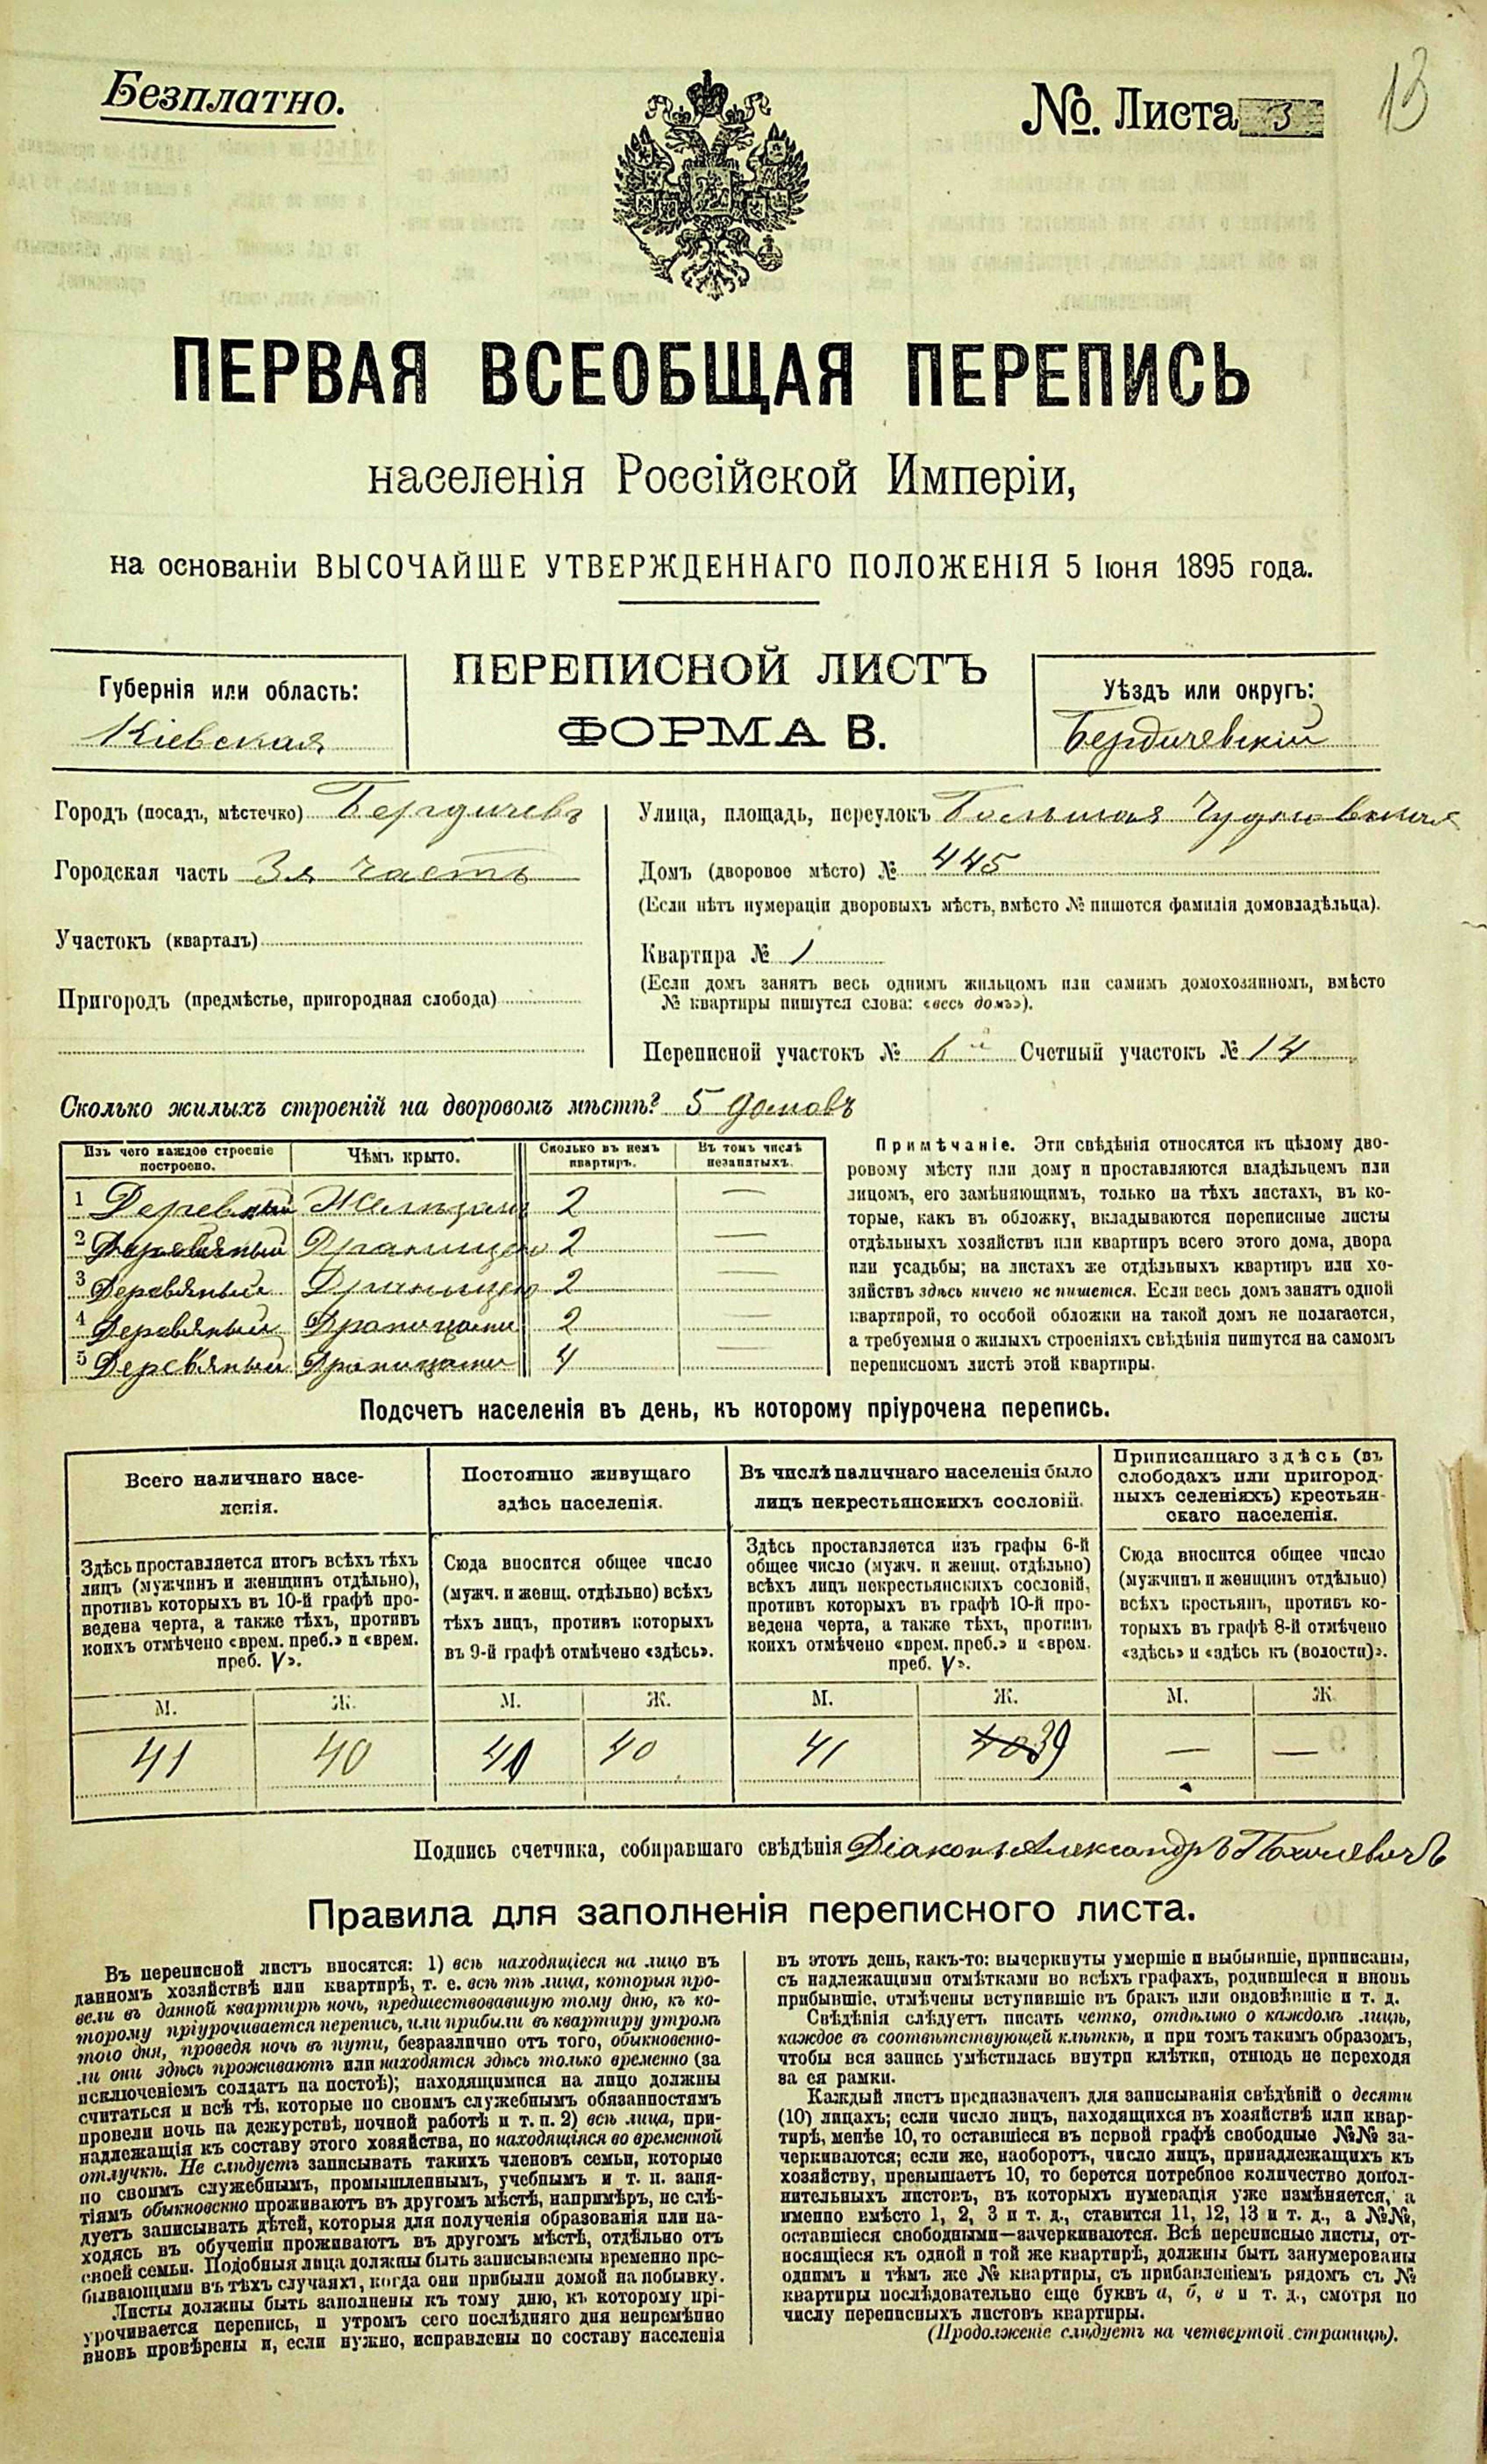 Безплатно.
№. Листа 3
13
ПЕРВАЯ ВСЕОБЩАЯ ПЕРЕПИСЬ
населенія Россійской Имперіи,
на основаніи ВЫСОЧАЙШЕ УТВЕРЖДЕННАГО ПОЛОЖЕНІЯ 5 Іюня 1895 года.
Губернія или область:
Кіевская
ПЕРЕПИСНОЙ ЛИСТЪ
ФОРМА В.
Уѣздъ или округъ:
Бердичевскій
Городъ (посадъ, мѣстечко) Бердичевъ
Городская часть 3я часть
Участокъ (кварталъ)
Пригородъ (предмѣстье, пригородная слобода)
Улица, площадь, переулокъ Большая Чудновская
Домъ (дворовое мѣсто) № 445
(Если нѣтъ нумераціи дворовыхъ мѣстъ, вмѣсто № пишется фамилія домовладѣльца).
Квартира № 1
(Если домъ занятъ весь однимъ жильцомъ или самимъ домохозяиномъ, вмѣсто
№ квартиры пишутся слова: «весь домъ»).
Переписной участокъ № 6й Счетный участокъ № 14
Сколько жилыхъ строеній на дворовомъ мѣстѣ? 5 домовъ
Изъ чего каждое строеніе построено. Чѣмъ крыто. Сколько въ немъ квартиръ. Въ томъ числѣ незанятыхъ.
1 Деревяный 2 —
2 Деревяный 2 —
3 Деревяный 2 —
4 Деревяный Драницами 2 —
5 Деревяный Драницами 4 —
Примѣчаніе. Эти свѣдѣнія относятся къ цѣлому дво-
ровому мѣсту или дому и проставляются владѣльцемъ или
лицомъ, его замѣняющимъ, только на тѣхъ листахъ, въ ко-
торые, какъ въ обложку, вкладываются переписные листы
отдѣльныхъ хозяйствъ или квартиръ всего этого дома, двора
или усадьбы; на листахъ же отдѣльныхъ квартиръ или хо-
зяйствъ здѣсь ничего не пишется. Если весь домъ занятъ одной
квартирой, то особой обложки на такой домъ не полагается,
а требуемыя о жилыхъ строеніяхъ свѣдѣнія пишутся на самомъ
переписномъ листѣ этой квартиры.
Подсчетъ населенія въ день, къ которому пріурочена перепись.
Всего наличнаго насе-
ленія.
Здѣсь проставляется итогъ всѣхъ тѣхъ
лицъ (мужчинъ и женщинъ отдѣльно),
противъ которыхъ въ 10-й графѣ про-
ведена черта, а также тѣхъ, противъ
коихъ отмѣчено «врем. преб.» и «врем.
преб. V».
М. Ж.
41 40
Постоянно живущаго
здѣсь населенія.
Сюда вносится общее число
(мужч. и женщ. отдѣльно) всѣхъ
тѣхъ лицъ, противъ которыхъ
въ 9-й графѣ отмѣчено «здѣсь».
М. Ж.
40
Въ числѣ наличнаго населенія было
лицъ некрестьянскихъ сословій.
Здѣсь проставляется изъ графы 6-й
общее число (мужч. и женщ. отдѣльно)
всѣхъ лицъ некрестьянскихъ сословій,
противъ которыхъ въ графѣ 10-й про-
ведена черта, а также тѣхъ, противъ
коихъ отмѣчено «врем. преб.» и «врем.
преб. V».
М. Ж.
41 40 39
Приписаннаго здѣсь (въ
слободахъ или пригород-
ныхъ селеніяхъ) крестьян-
скаго населенія.
Сюда вносится общее число
(мужчинъ и женщинъ отдѣльно)
всѣхъ крестьянъ, противъ ко-
торыхъ въ графѣ 8-й отмѣчено
«здѣсь» и «здѣсь къ (волости)».
М. Ж
— —
Подпись счетчика, собиравшаго свѣдѣнія Діаконъ Александръ
Правила для заполненія переписного листа.
Въ переписной листъ вносятся: 1) всѣ находящіеся на лицо въ
данномъ хозяйствѣ или квартирѣ, т. е. всѣ тѣ лица, которыя про-
вели въ данной квартирѣ ночь, предшествовавшую тому дню, къ ко-
торому пріурочивается перепись, или прибыли въ квартиру утромъ
того дня, проведя ночь въ пути, безразлично отъ того, обыкновенно-
ли они здѣсь проживаютъ или находятся здѣсь только временно (за
исключеніемъ солдатъ на постоѣ); находящимися на лицо должны
считаться и всѣ тѣ, которые по своимъ служебнымъ обязанностямъ
провели ночь на дежурствѣ, ночной работѣ и т. п. 2) всѣ лица, при-
надлежащія къ составу этого хозяйства, но находящіяся во временной
отлучкѣ. Не слѣдуетъ записывать такихъ членовъ семьи, которые
по своимъ служебнымъ, промышленнымъ, учебнымъ и т. п. заня-
тіямъ обыкновенно проживаютъ въ другомъ мѣстѣ, напримѣръ, не слѣ-
дуетъ записывать дѣтей, которыя для полученія образованія или на-
ходясь въ обученіи проживаютъ въ другомъ мѣстѣ, отдѣльно отъ
своей семьи. Подобныя лица должны быть записываемы временно пре-
бывающими въ тѣхъ случаяхъ, когда они прибыли домой на побывку.
Листы должны быть заполнены къ тому дню, къ которому прі-
урочивается перепись, и утромъ сего послѣдняго дня непремѣнно
вновь провѣрены и, если нужно, исправлены по составу населенія
въ этотъ день, какъ-то: вычеркнуты умершіе и выбывшіе, приписаны,
съ надлежащими отмѣтками во всѣхъ графахъ, родившіеся и вновь
прибывшіе, отмѣчены вступившіе въ бракъ или овдовѣвшіе и т. д.
Свѣдѣнія слѣдуетъ писать четко, отдѣльно о каждомъ лицѣ,
каждое въ соотвѣтствующей клѣткѣ, и при томъ такимъ образомъ,
чтобы вся запись умѣстилась внутри клѣтки, отнюдь не переходя
за ея рамки.
Каждый листъ предназначенъ для записыванія свѣдѣній о десяти
(10) лицахъ; если число лицъ, находящихся въ хозяйствѣ или квар-
тирѣ, менѣе 10, то оставшіеся въ первой графѣ свободные №№ за-
черкиваются; если же, наоборотъ, число лицъ, принадлежащихъ къ
хозяйству, превышаетъ 10, то берется потребное количество допол-
нительныхъ листовъ, въ которыхъ нумерація уже измѣняется, а
именно вмѣсто 1, 2, 3 и т. д., ставится 11, 12, 13 и т. д., а №№,
оставшіеся свободными—зачеркиваются. Всѣ переписные листы, от-
носящіеся къ одной и той же квартирѣ, должны быть занумерованы
однимъ и тѣмъ же № квартиры, съ прибавленіемъ рядомъ съ №
квартиры послѣдовательно еще буквъ а, б, в и т. д., смотря по
числу переписныхъ листовъ квартиры.
(Продолженіе слѣдуетъ на четвертой страницѣ).